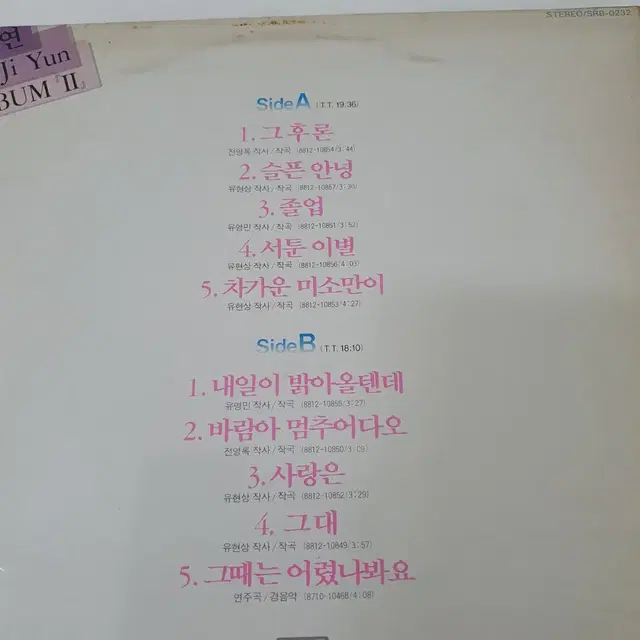 연
Ji Yun
BUM 『II』
STEREO/SRB-0232
Side A (T.T. 19:36)
1. 그 후 론
전영록 작사 / 작곡 (8812-10854/3:44)
2. 슬픈 안녕
유현상 작사 / 작곡 (8812-10857/3:30)
3. 졸업
유영민 작사 / 작곡 (8812-10851/3:52)
4. 서툰 이별
유현상 작사 / 작곡 (8812-10856/4:03)
5. 차가운 미소만이
유현상 작사 / 작곡 (8812-10853/4:27)
Side B (T.T. 18:10)
1. 내일이 밝아올텐데
유영민 작사 / 작곡 (8812-10855/3:27)
2. 바람아 멈추어다오
전영록 작사 / 작곡 (8812-10850/3:09)
3. 사랑은
유현상 작사 / 작곡 (8812-10852/3:29)
4. 그대
유현상 작사 / 작곡 (8812-10849/3:57)
5. 그때는 어렸나봐요
연주곡 / 경음악 (8710-10468/4:08)